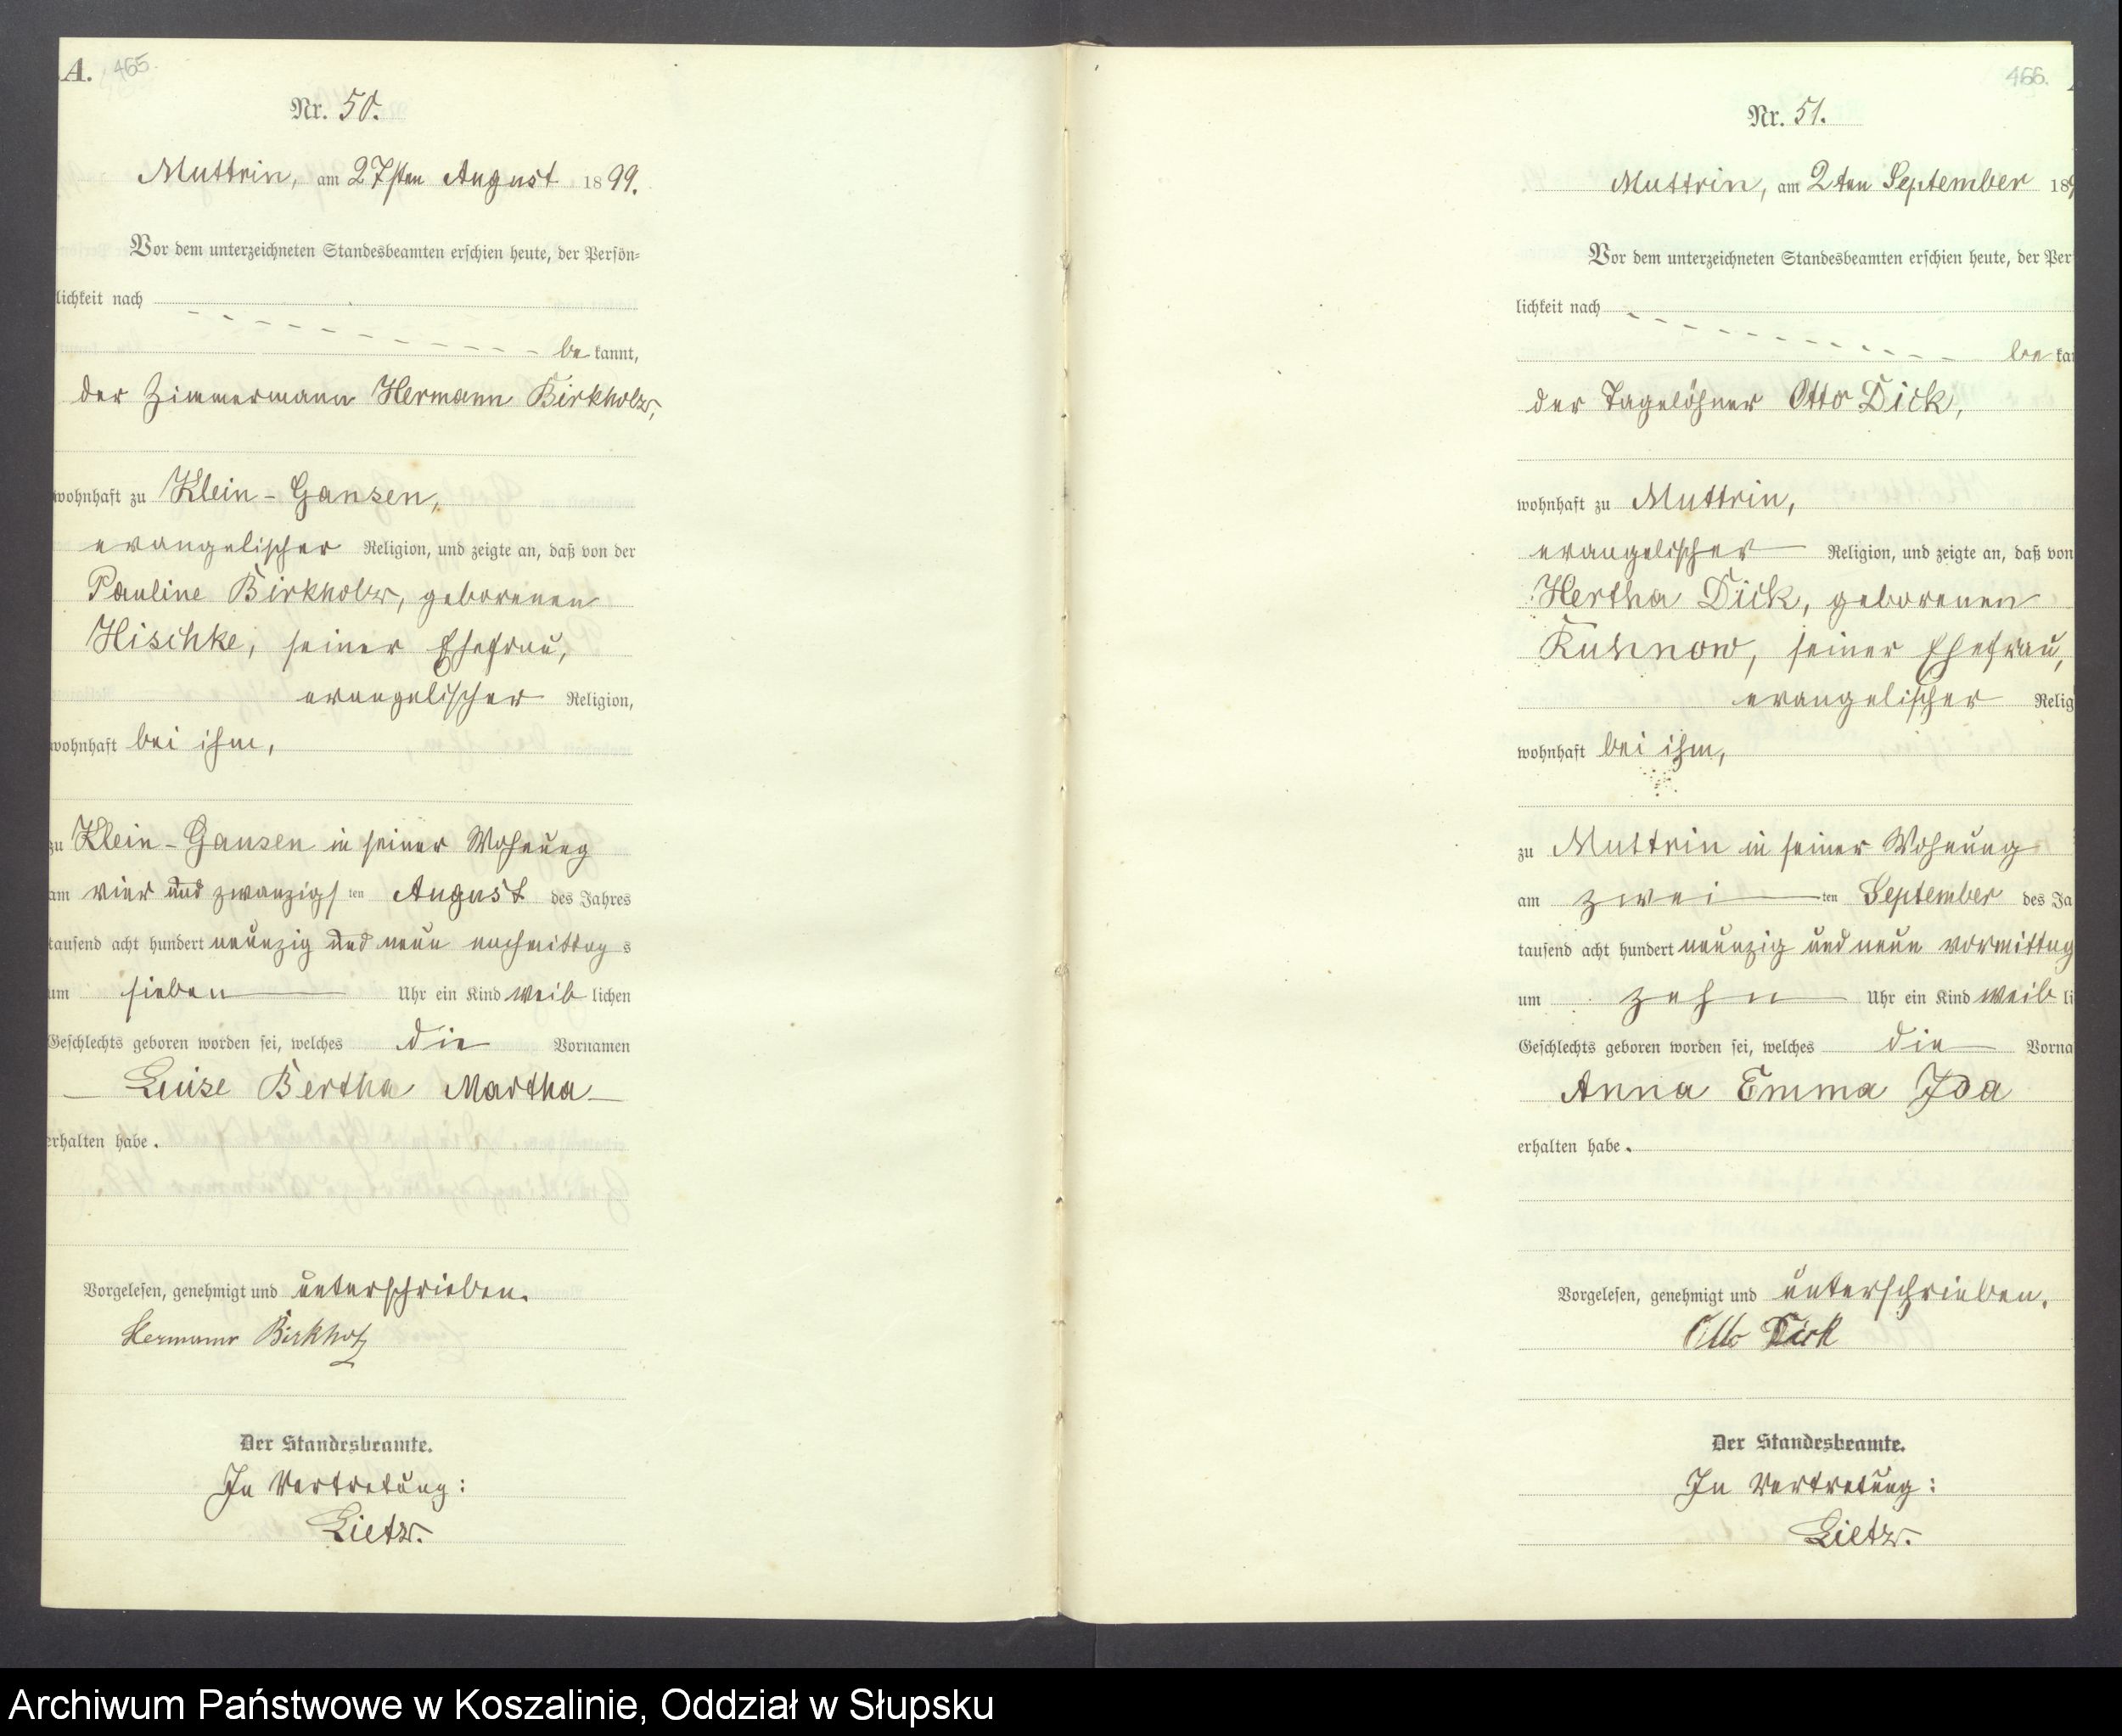 A. 465.
Nr. 50.
Muttrin, am 27sten August 1899.
Vor dem unterzeichneten Standesbeamten erschien heute, der Persön-
lichkeit nach
be kannt,
der Zimmermann Hermann Birkholz,
wohnhaft zu Klein-Gansen,
evangelischer Religion, und zeigte an, daß von der
Pauline Birkholz, geborenen
Hischke, seiner Ehefrau,
evangelischer Religion,
wohnhaft bei ihm,
zu Klein-Gansen in seiner Wohnung
am vier und zwanzigs ten August des Jahres
tausend acht hundert neunzig und neun nachmittag s
um sieben Uhr ein Kind weib lichen
Geschlechts geboren worden sei, welches die Vornamen
Luise Bertha Martha
erhalten habe.
Vorgelesen, genehmigt und unterschrieben.
Hermann Birkholz
Der Standesbeamte.
In Vertretung:
Lietz.
466.
Nr. 51.
Muttrin, am 2ten September 189
Vor dem unterzeichneten Standesbeamten erschien heute, der Per
lichkeit nach
be kan
der Tagelöhner Otto Dick,
wohnhaft zu Muttrin,
evangelischer Religion, und zeigte an, daß von
Hertha Dick, geborenen
Kuhnow, seiner Ehefrau,
evangelischer Relig
wohnhaft bei ihm,
zu Muttrin in seiner Wohnung
am zwei ten September des Ja
tausend acht hundert neunzig und neun vormittag
um zehn Uhr ein Kind weib li
Geschlechts geboren worden sei, welches die Vorna
Anna Emma Ida
erhalten habe.
Vorgelesen, genehmigt und unterschrieben.
Otto Dick
Der Standesbeamte.
In Vertretung:
Lietz.
Archiwum Państwowe w Koszalinie, Oddział w Słupsku